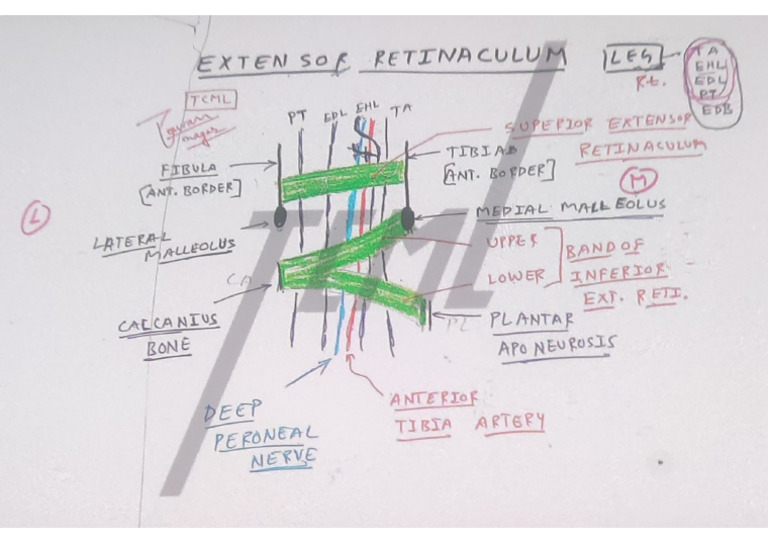 EXTENSOR RETINACULUM
LEG
Rt.
TA
EHL
EDL
PT
EDB
TCML
PT EDL EHL TA
SUPERIOR EXTENSOR
RETINACULUM
FIBULA
[ANT. BORDER]
TIBIA
[ANT. BORDER]
M
L
MEDIAL MALLEOLUS
LATERAL
MALLEOLUS
UPPER
LOWER
BAND OF
INFERIOR
EXT. RETI.
CA
CALCANIUS
BONE
PLANTAR
APONEUROSIS
DEEP
PERONEAL
NERVE
ANTERIOR
TIBIA ARTERY
TCML